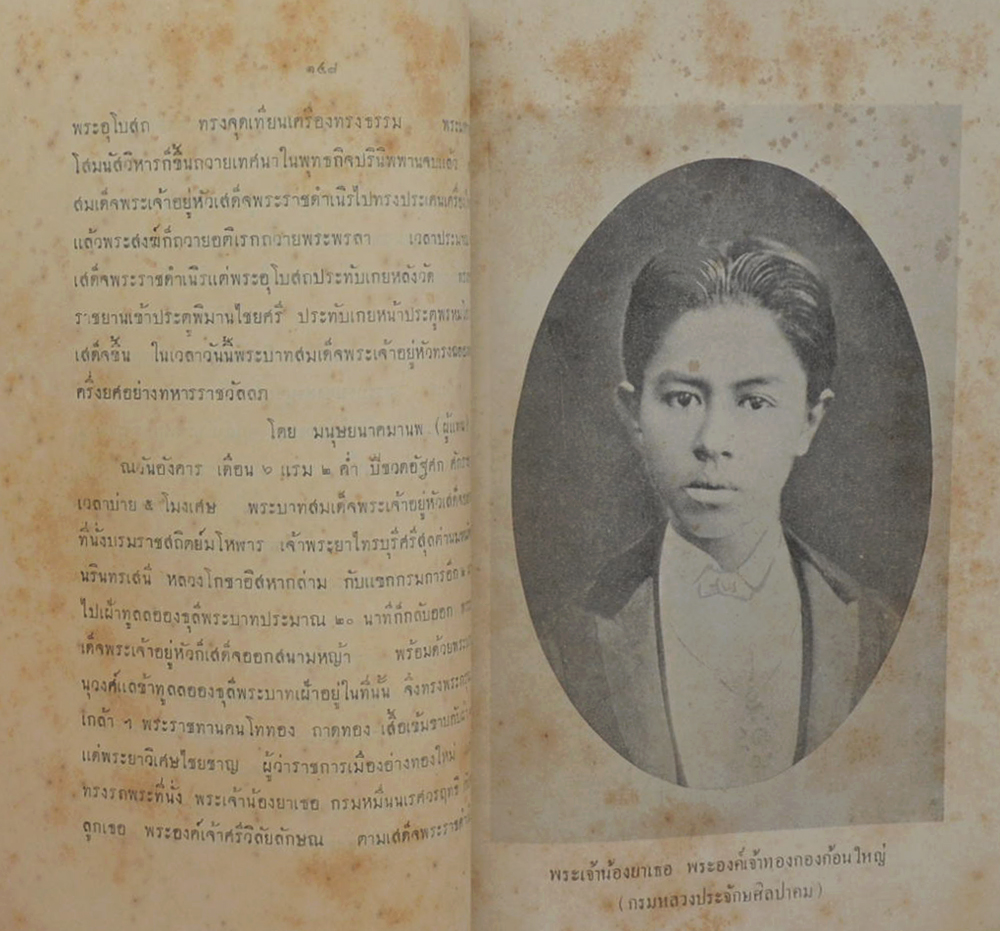 ๑๔๗
พระอุโบสถ ทรงจุดเทียนเครื่องทรงธรรม
โสมนัสวิหารก็ขึ้นถวายเทศนาในพุทธกิจปรินิพพานจบแล้ว
สมเด็จพระเจ้าอยู่หัวเสด็จพระราชดำเนิรไปทรงประเคนเครื่อง
แล้วพระสงฆ์ก็ถวายอติเรกถวายพระพรลา
เสด็จพระราชดำเนิรแต่พระอุโบสถประทับเกยหลังวัด
ราชยานเข้าประตูพิมานไชยศรี ประทับเกยหน้าประตูพรหม
เสด็จขึ้น ในเวลาวันนี้พระบาทสมเด็จพระเจ้าอยู่หัวทรง
ครึ่งยศอย่างทหารราชวัลลภ
โดย มนุษยนาคมานพ (ผู้แทน)
ณวันอังคาร เดือน ๖ แรม ๒ ค่ำ ปีชวดอัฐศก
เวลาบ่าย ๕ โมงเศษ พระบาทสมเด็จพระเจ้าอยู่หัวเสด็จ
ที่นั่งบรมราชสถิตย์มโหฬาร เจ้าพระยาไทรบุรีศรีสุลต่าน
นรินทรเสนี หลวงโกชาอิสหากล่าม กับแขกกรมการอีก
ไปเฝ้าทูลลอองธุลีพระบาทประมาณ ๒๐ นาทีก็กลับออก
เด็จพระเจ้าอยู่หัวก็เสด็จออกสนามหญ้า พร้อมด้วย
นุวงศ์แลข้าทูลลอองธุลีพระบาทเฝ้าอยู่ในที่นั้น จึงทรงพระ
เกล้า ฯ พระราชทานคนโททอง ถาดทอง เสื้อเข้มขาบ
แด่พระยาวิเศษไชยชาญ ผู้ว่าราชการเมืองอ่างทองใหม่
ทรงรถพระที่นั่ง พระเจ้าน้องยาเธอ กรมหมื่นนเรศวรฤทธิ์
ลูกเธอ พระองค์เจ้าศรีวิลัยลักษณ ตามเสด็จพระราช
พระเจ้าน้องยาเธอ พระองค์เจ้าทองกองก้อนใหญ่
(กรมหลวงประจักษศิลปาคม)